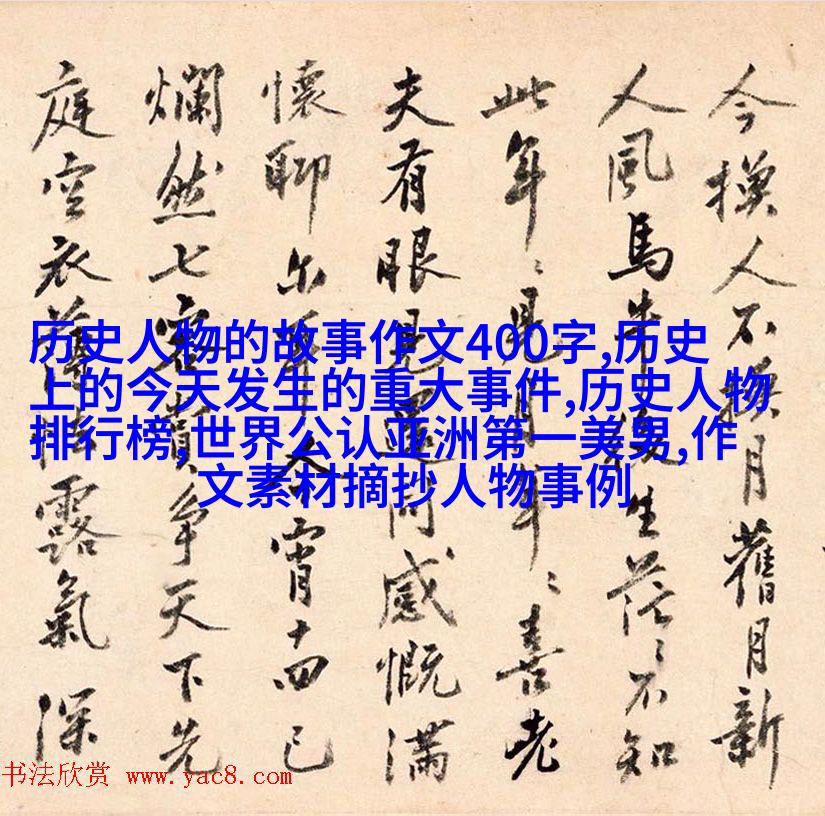 今換人不換月舊月新
人風馬牛後生茫〻不知
此年〻見月年〻喜老
夫有眼見還同感慨滿
懷聊尔
今宵十四已
爛然七寶
争天下先
庭空衣
露氣深
历史人物的故事作文400字,历史
上的今天发生的重大事件,历史人物
排行榜,世界公认亚洲第一美男,作
文素材摘抄人物事例
书法欣赏 www.yac8.com